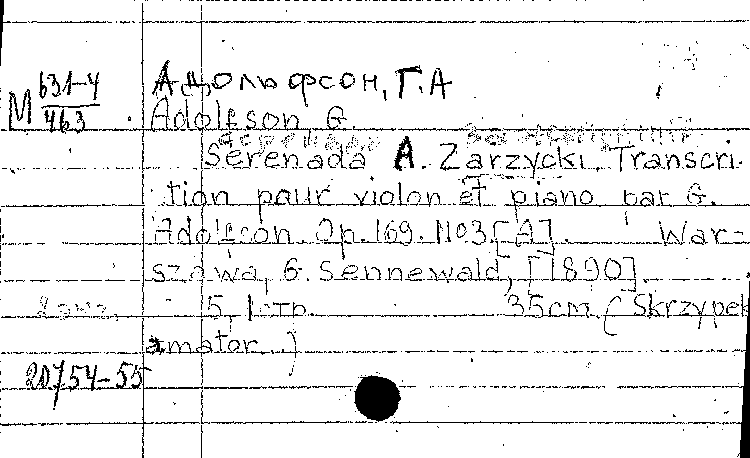 М 631-4
463
Адольфсон, Г.А
Adolfson G.
Serenada A. Zarzycki. Transcri-
tion paur violon et piano par G.
Adolfson. Op. 169. No3.[A]. War-
szawa, G. Sennewald, [1890].
5, 1 стр. 35 см. (Skrzypek
amator.)
20754-55